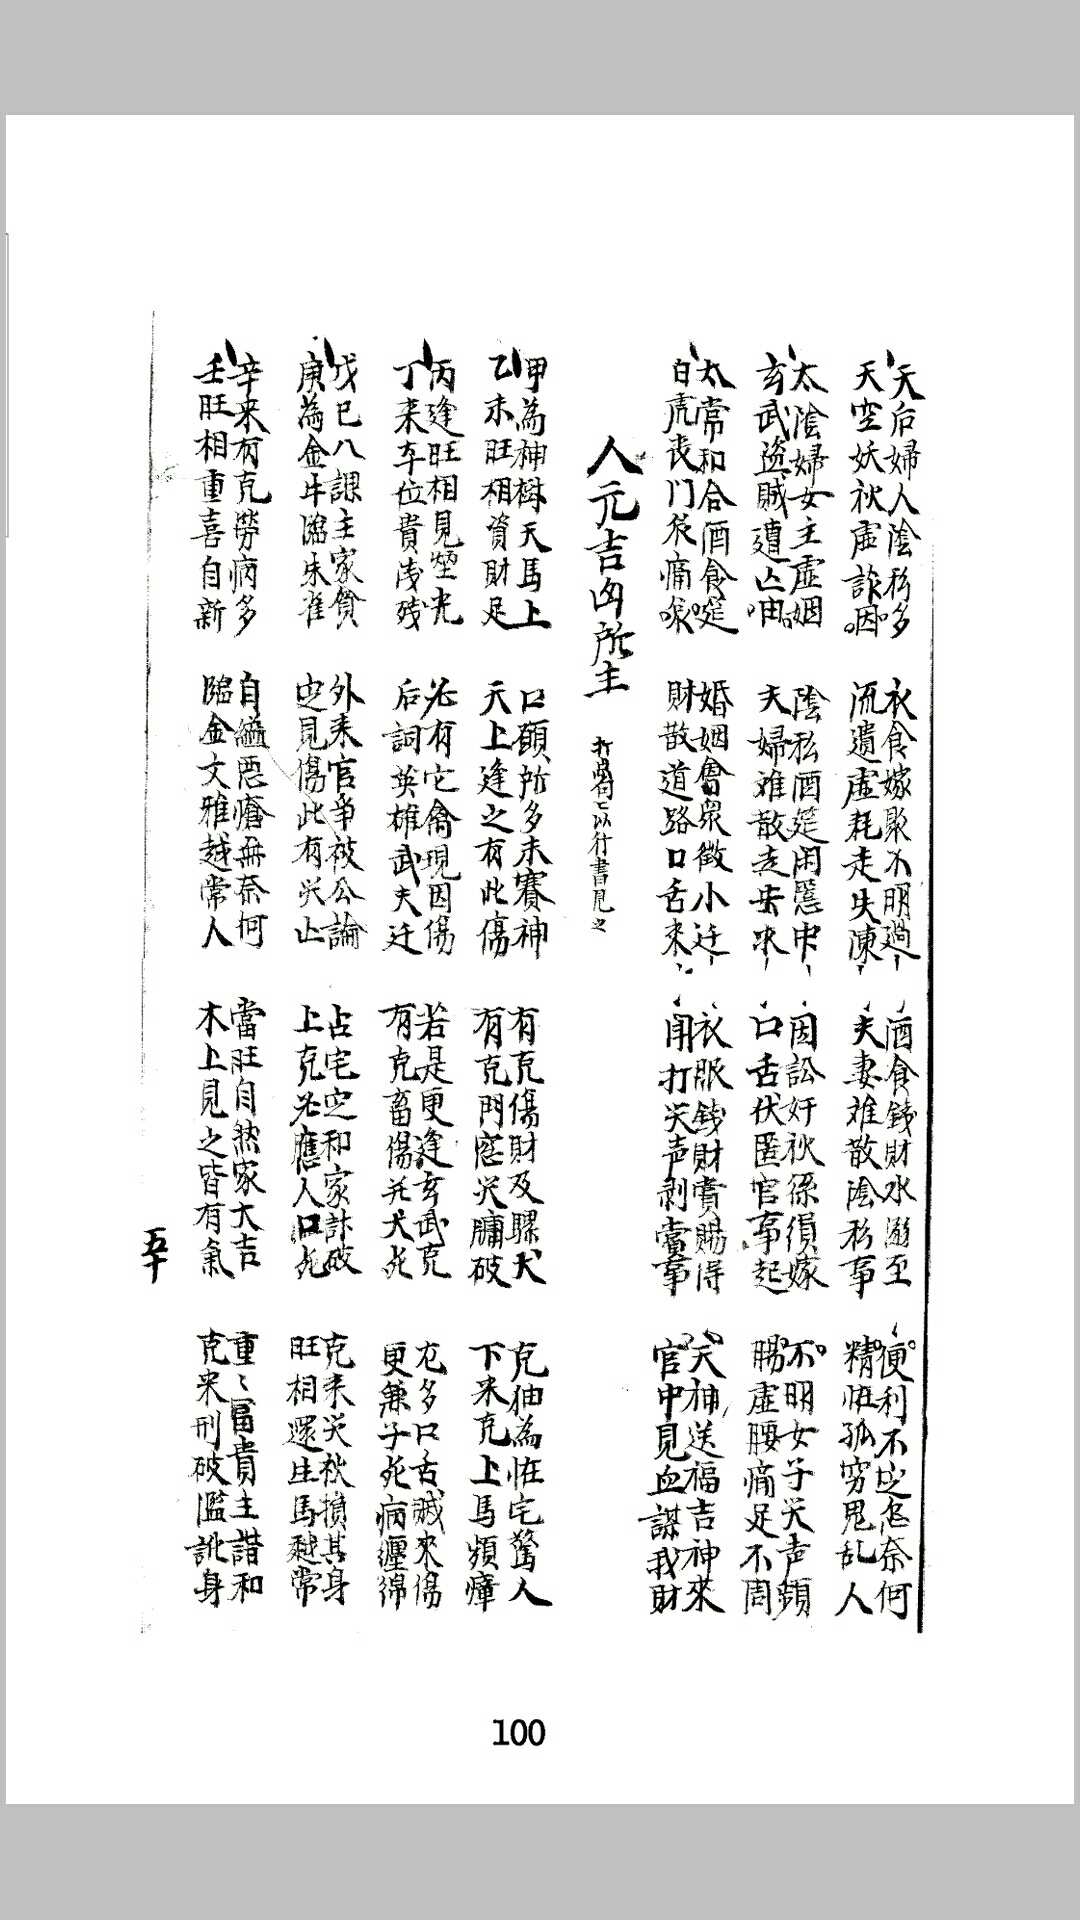 天后婦人陰私多 衣食嫁娶不明過 酒食錢財水溺至 便利不定怎奈何
天空妖秋虛詐因 流遺虛耗走失陳 夫妻难散陰私事 精怪孤穷鬼乱人
太陰婦女主虛姻 陰私酒筵用隱申 因訟奸秋 嫁 不明女子哭声頻
玄武盗賊遭亡 夫婦难散走失來 口舌伏匿官事起 腸虛腰痛足不周
太常和合酒食筵 婚姻會衆徵小迁 衣服錢財賞賜得 天神送福吉神來
白虎丧门疾痛 財散道路口舌來 打哭声 事 官中見血謀我財
人元吉凶所主
以行書見之
甲為神樹天馬上 口願所多未賽神 有克傷財及騾犬 克 為怪宅驚人
乙未旺相資財足 天上逢之有此傷 有克門窓哭 破 下来克上馬頻瘴
丙逢旺相見 光 必有它禽現因傷 若是更逢玄武克 尤多口舌贼來傷
丁来本位貴 残 后詞英雄武夫迁 有克畜傷并犬死 更兼子死病纏綿
戊己八課主家貧 外来官爭被公論 占宅定和家計破 克来哭秋損其身
庚為金斗臨朱雀 定見傷此有哭止 上克必應人口死 旺相還生馬越常
辛来有克勞病多 自縊恶瘡無奈何 當旺自然家大吉 重重冨貴主諧和
壬旺相重喜自新 臨金文雅越常人 木上見之皆有氣 克来刑破濫訛身
五十
100